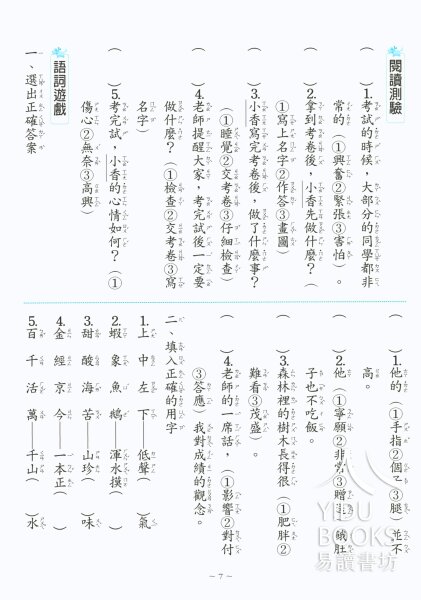 閱讀測驗
（　）1.考試的時候，大部分的同學都非
常的（①興奮②緊張③害怕）。
（　）2.拿到考卷後，小香先做什麼？（
①寫上名字②作答③畫圖）
（　）3.小香寫完考卷後，做了什麼事？
（①睡覺②交考卷③仔細檢查）
（　）4.老師提醒大家，考完試後一定要
做什麼？（①檢查②交考卷③寫
名字）
（　）5.考完試，小香的心情如何？（①
傷心②無奈③高興）
語詞遊戲
一、選出正確答案
1.他的（①手指②個子③腿）並不
高。
2.他（①寧願②非常③贈送）餓肚
子也不吃飯。
3.森林裡的樹木長得很（①肥胖②
難看③茂盛）。
4.老師的一席話，（①影響②對付
③答應）我對成績的觀念。
二、填入正確的用字
1.上　中　左　下——低聲（　）氣
2.蝦　象　魚　鵝——渾水摸（　）
3.甜　酸　海　苦——山珍（　）味
4.金　經　京　今——一本正（　）
5.百　千　活　萬——千山（　）水
～7～
YIDU
BOOKS
易讀書坊